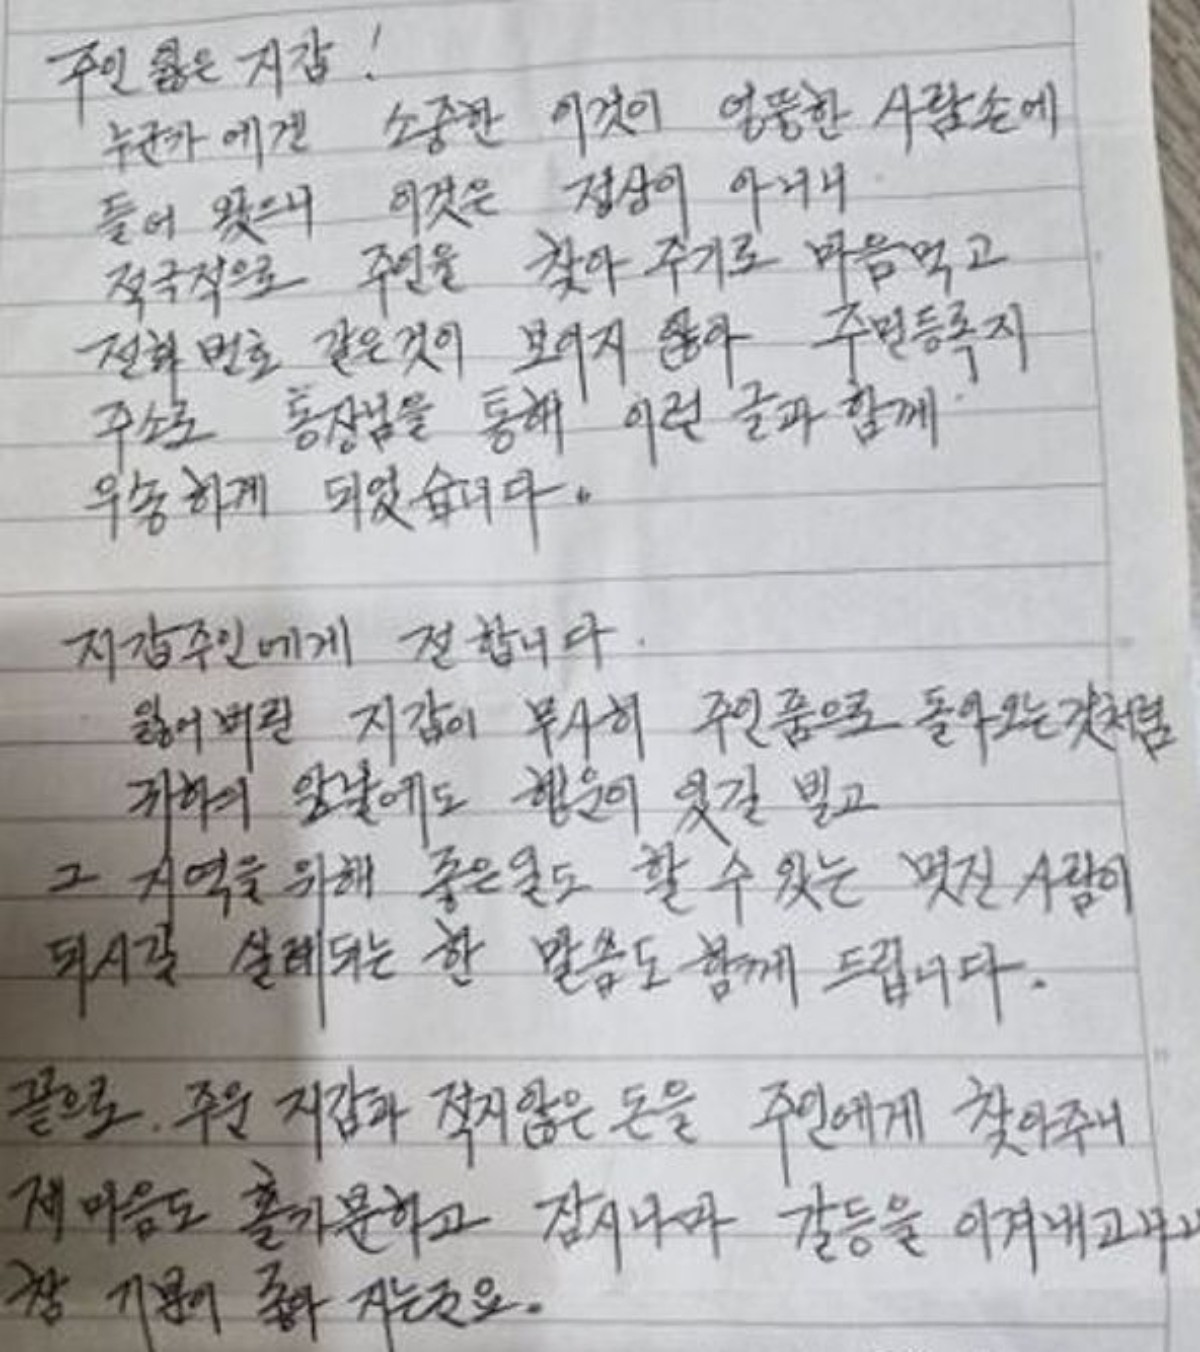 주인 잃은 지갑!
누군가 에겐 소중한 이것이 엉뚱한 사람손에
들어 왔으니 이것은 정상이 아니니
적극적으로 주인을 찾아 주기로 마음먹고
전화 번호 같은것이 보이지 않아 주민등록지
주소로 통장님을 통해 이런 글과 함께
우송하게 되었습니다.
지갑주인에게 전합니다.
잃어버린 지갑이 무사히 주인품으로 돌아오는것처럼
귀하의 앞날에도 행운이 있길 빌고
그 지역을 위해 좋은일도 할 수 있는 멋진 사람이
되시길 실례되는 한 말씀도 함께 드립니다.
끝으로. 주운 지갑과 적지않은 돈을 주인에게 찾아주니
제 마음도 홀가분하고 잠시나마 갈등을 이겨내고나니
참 기분이 좋아 지는군요.